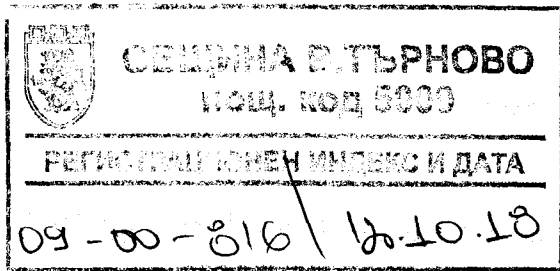 ОБЩИНА В. ТЪРНОВО
ПОЩ. КОД 5000
РЕГИСТРАЦИОНЕН ИНДЕКС И ДАТА
09-00-816 / 12.10.18